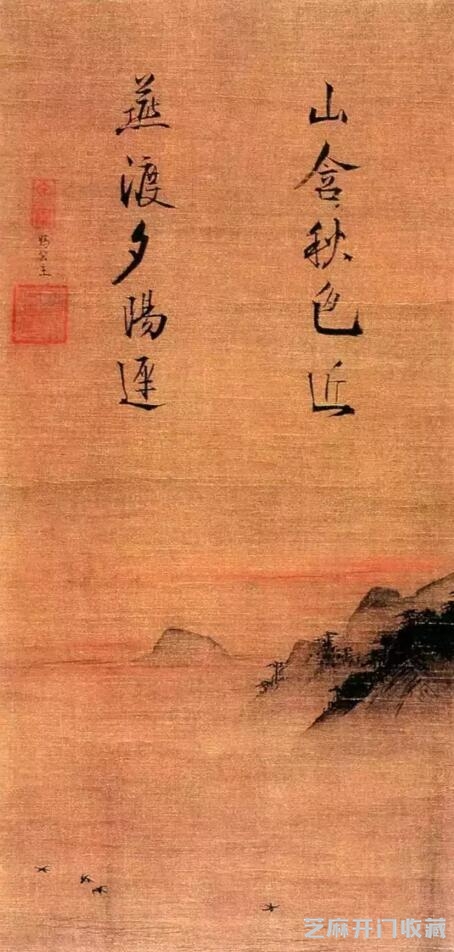 山含秋色近
燕渡夕陽遲
賜公主
芝麻开门收藏